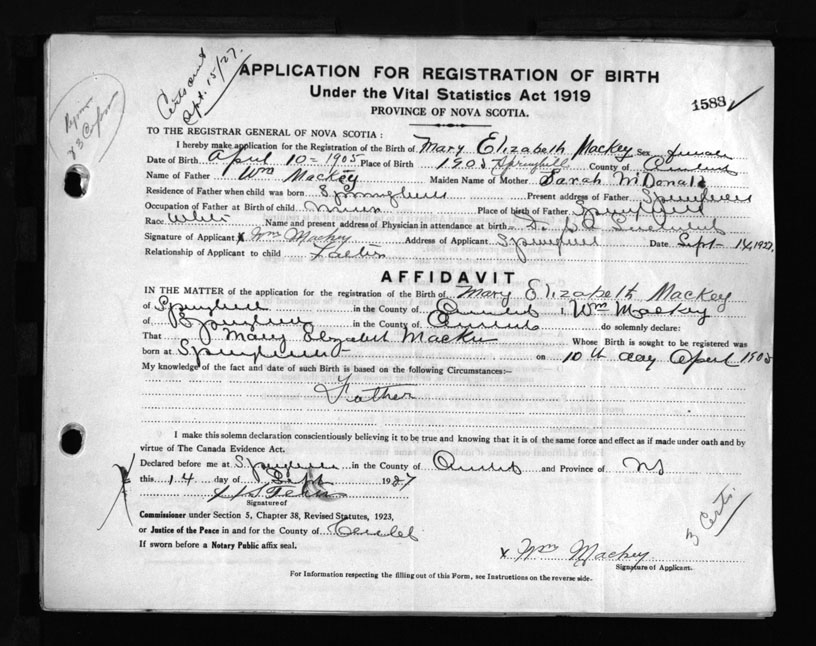 Certs sent
Sept. 15/27.
APPLICATION FOR REGISTRATION OF BIRTH
Under the Vital Statistics Act 1919
PROVINCE OF NOVA SCOTIA.
1588
TO THE REGISTRAR GENERAL OF NOVA SCOTIA :
I hereby make application for the Registration of the Birth of Mary Elizabeth Mackey Sex female
Date of Birth April 10 - 1905 Place of Birth 1905 Springhill County of Cumberland
Name of Father Wm Mackey Maiden Name of Mother Sarah McDonald
Residence of Father when child was born Springhill Present address of Father Springhill
Occupation of Father at Birth of child Miner Place of birth of Father Springhill
Race White Name and present address of Physician in attendance at birth Dr
Signature of Applicant x Wm Mackey Address of Applicant Springhill Date Sept - 14, 1927.
Relationship of Applicant to child Father
AFFIDAVIT
IN THE MATTER of the application for the registration of the Birth of Mary Elizabeth Mackey
of Springhill in the County of Cumberland I, Wm Mackey
of Springhill in the County of Cumberland do solemnly declare:
That Mary Elizabeth Mackie Whose Birth is sought to be registered was
born at Springhill on 10th day April 1905
My knowledge of the fact and date of such Birth is based on the following Circumstances:—
Father
I make this solemn declaration conscientiously believing it to be true and knowing that it is of the same force and effect as if made under oath and by
virtue of The Canada Evidence Act.
Declared before me at Springhill in the County of Cumberland and Province of NS
this 14 day of Sept 1927
Signature of
Commissioner under Section 5, Chapter 38, Revised Statutes, 1923,
or Justice of the Peace in and for the County of Cumberland
If sworn before a Notary Public affix seal.
3 Certs.
x Wm Mackey
Signature of Applicant.
For Information respecting the filling out of this Form, see Instructions on the reverse side.